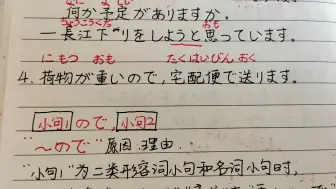 何か予定がありますか。
ちょうこうくだ
一長江下りをしようと思っています。
にもつ おも たくはいびん おく
4.荷物が重いので,宅配便で送ります。
小句1 ので, 小句2
"~ので"原因.理由.
"小句1"为二类形容词小句和名词小句时,